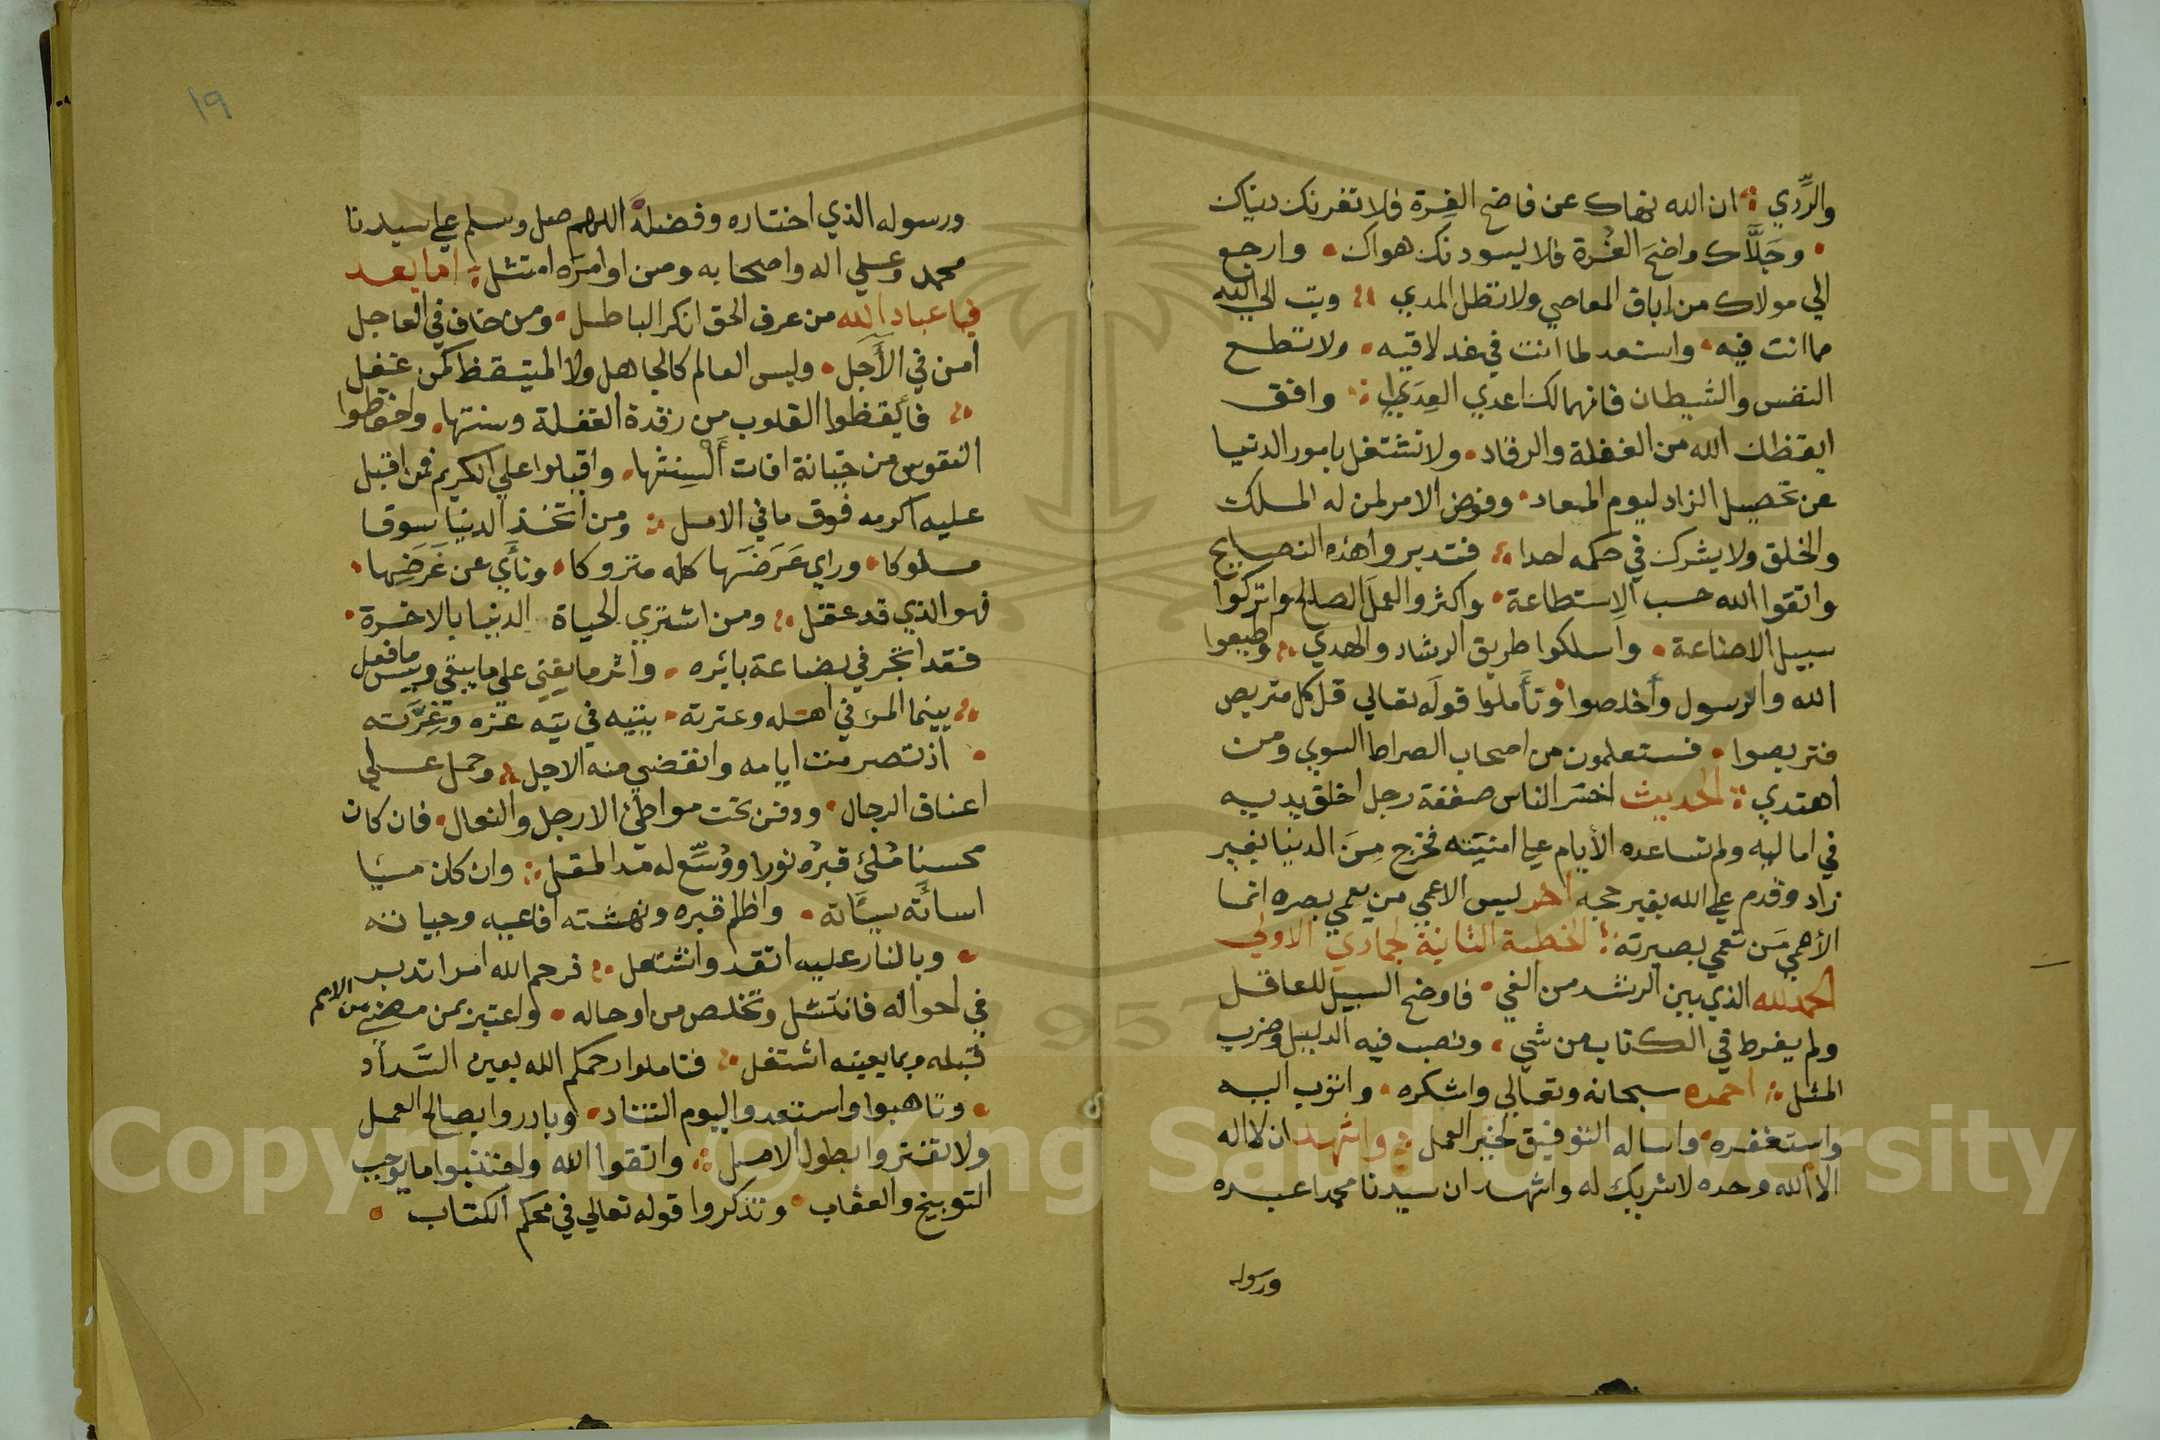 والرَّدي ؞ ان الله نهاك عن فاضح الغِرة فلا تغرنك دنياك
• وجَلَّاك واضحَ الغُرة فلا يسودنك هواك • وارجع
الي مولاك من اباق المعاصي ولا تطل المدي ؞ وتب الي الله
مما انت فيه • واستعد لما انت في غد لاقيه • ولا تطع
النفس والشيطان فانهما لك اعدي العِدَي ؞ وافق
ايقظك الله من الغفلة والرقاد • ولا تشتغل بامور الدنيا
عن تحصيل الزاد ليوم المعاد • وفوض الامر لمن له الملك
والخلق ولا يشرك في حكمه احدا ؞ فتدبروا هذه النصايح
واتقوا الله حسب الاِستطاعة • واكثروا العملَ الصالح واتركوا
سبيل الاضاعة • واسلكوا طريق الرشاد والهدي ؞ وطيعوا
الله والرسول وأخلصوا • وتأملوا قولَه تعالي قل كل متربص
فتربصوا • فستعلمون من اصحاب الصراط السوي ومن
اهتدي ؞ الحديث اخسَر الناس صفقة رجل اخلق يديه
في اماليه ولم تساعده الأيام علي امنيَته فخرج مِنَ الدنيا بغير
زاد وقدم علي الله بغير حجه اخر ليس الاعمي من يعمي بصره انما
الأعمي مَن تعمي بصيرته ؞ الخطبة الثانية لجمادي الاولي
الحمد لله الذي بين الرشد من الغي • فاوضح السبيل للعاقل
ولم يفرط في الكتاب من شي • ونصب فيه الدليل وضرب
المثل ؞ احمده سبحانه وتعالي واشكره • واتوب اليه
واستغفره • واساله التوفيق لخير العمل ؞ واشهد ان لا اله
الا الله وحده لا شريك له واشهد ان سيدنا محمدا عبده
ورسوله
١٩
ورسوله الذي اختاره وفضله اللهم صل وسلم علي سيدنا
محمد وعلي اله واصحابه ومن اوامره امتثل ؞ اما بعد
فيا عباد الله من عرف الحق انكر الباطل • ومن خاف في العاجل
امن في الأَجَل • وليس العالم كالجاهل ولا المتيقظ كمن غفل
؞ فأيقظوا القلوب من رقدة الغفلة وسنتها • واحفظوا
النفوس من خيانة افات ألسِنتها • واقبلوا علي الكريم فمن اقبل
عليه اكرمه فوق ما في الامل ؞ ومن اتخذ الدنيا سوقا
مسلوكا • وراي عَرَضَها كله متروكا • ونأَي عن غَرَضِها •
فهو الذي قد عقل ؞ ومن اشتري الحياة الدنيا بالاخرة •
فقد اتجر في بضاعة بائره • واثر ما يفني علي ما يبقي وبيس ما فعل
؞ بينما المرء في اهله وعترته • يتيه في تيه عزه وغِرَّته
• اذ تصرمت ايامه وانقضي منه الاجل ؞ وحمل علي
اعناق الرجال • ودفن تحت مواطئ الارجل والنعال • فان كان
محسنا مُلئ قبرُه نورا ووُسِّع له مد المقل ؞ وان كان مسيا
اسأَته سيَّاته • واظلم قبره ونهشته افاعيه وحياته
• وبالنار عليه اتقد واشتعل ؞ فرحم الله امرا تدبر
في احواله فانتشل وتخلص من اوحاله • واعتبر بمن مضي من الامم
قبله وبما يعينه اشتغل ؞ فتاملوا رحمكم الله بعين السَّداد
• وتاهبوا واستعدوا ليوم التناد • وبادروا بصالح العمل
ولا تغتروا بطول الامل ؞ واتقوا الله واجتنبوا ما يوجب
التوبيخ والعقاب • وتذكروا قوله تعالي في محكم الكتاب •
Copyright © King Saud University
1957